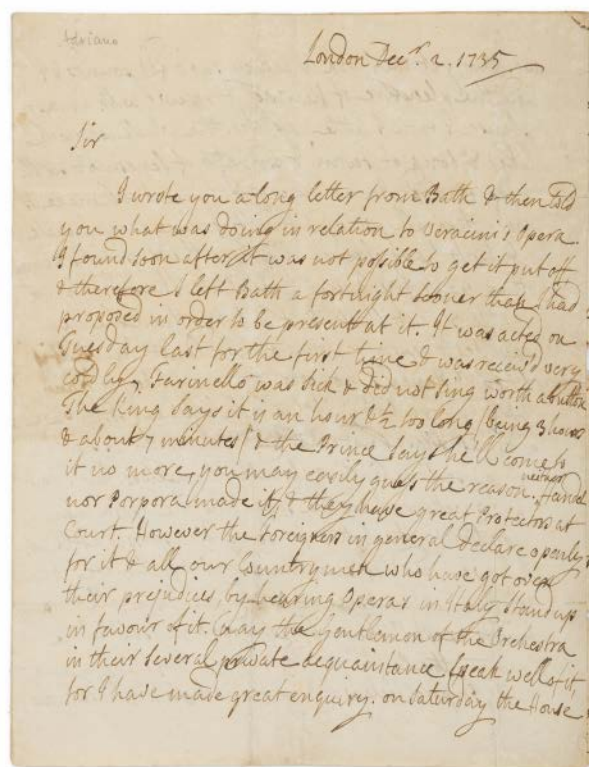 Adriano
London Decr. 2. 1735
Sir
I wrote you a long letter from Bath & then told
you what was doing in relation to Veracini's Opera.
I found soon after it was not possible to get it put off
& therefore I left Bath a fortnight sooner than I had
proposed in order to be present at it. It was acted on
Tuesday last for the first time & was receiv'd very
coldly, Farinello was sick & did not sing worth a button
The King says it is an hour & ½ too long (being 3 hours
& about 7 minutes) & the Prince says he'll come to
it no more, you may easily guess the reason. neither Handel
nor Porpora made it, & they have great Protectors at
Court. However the foreigners in general declare openly
for it & all our Countrymen who have got over
their prejudices, by hearing Operas in Italy stand up
in favour of it. (nay the Gentlemen of the Orchestra
in their several private acquaintance speak well of it,
for I have made great enquiry. on Saturday the House